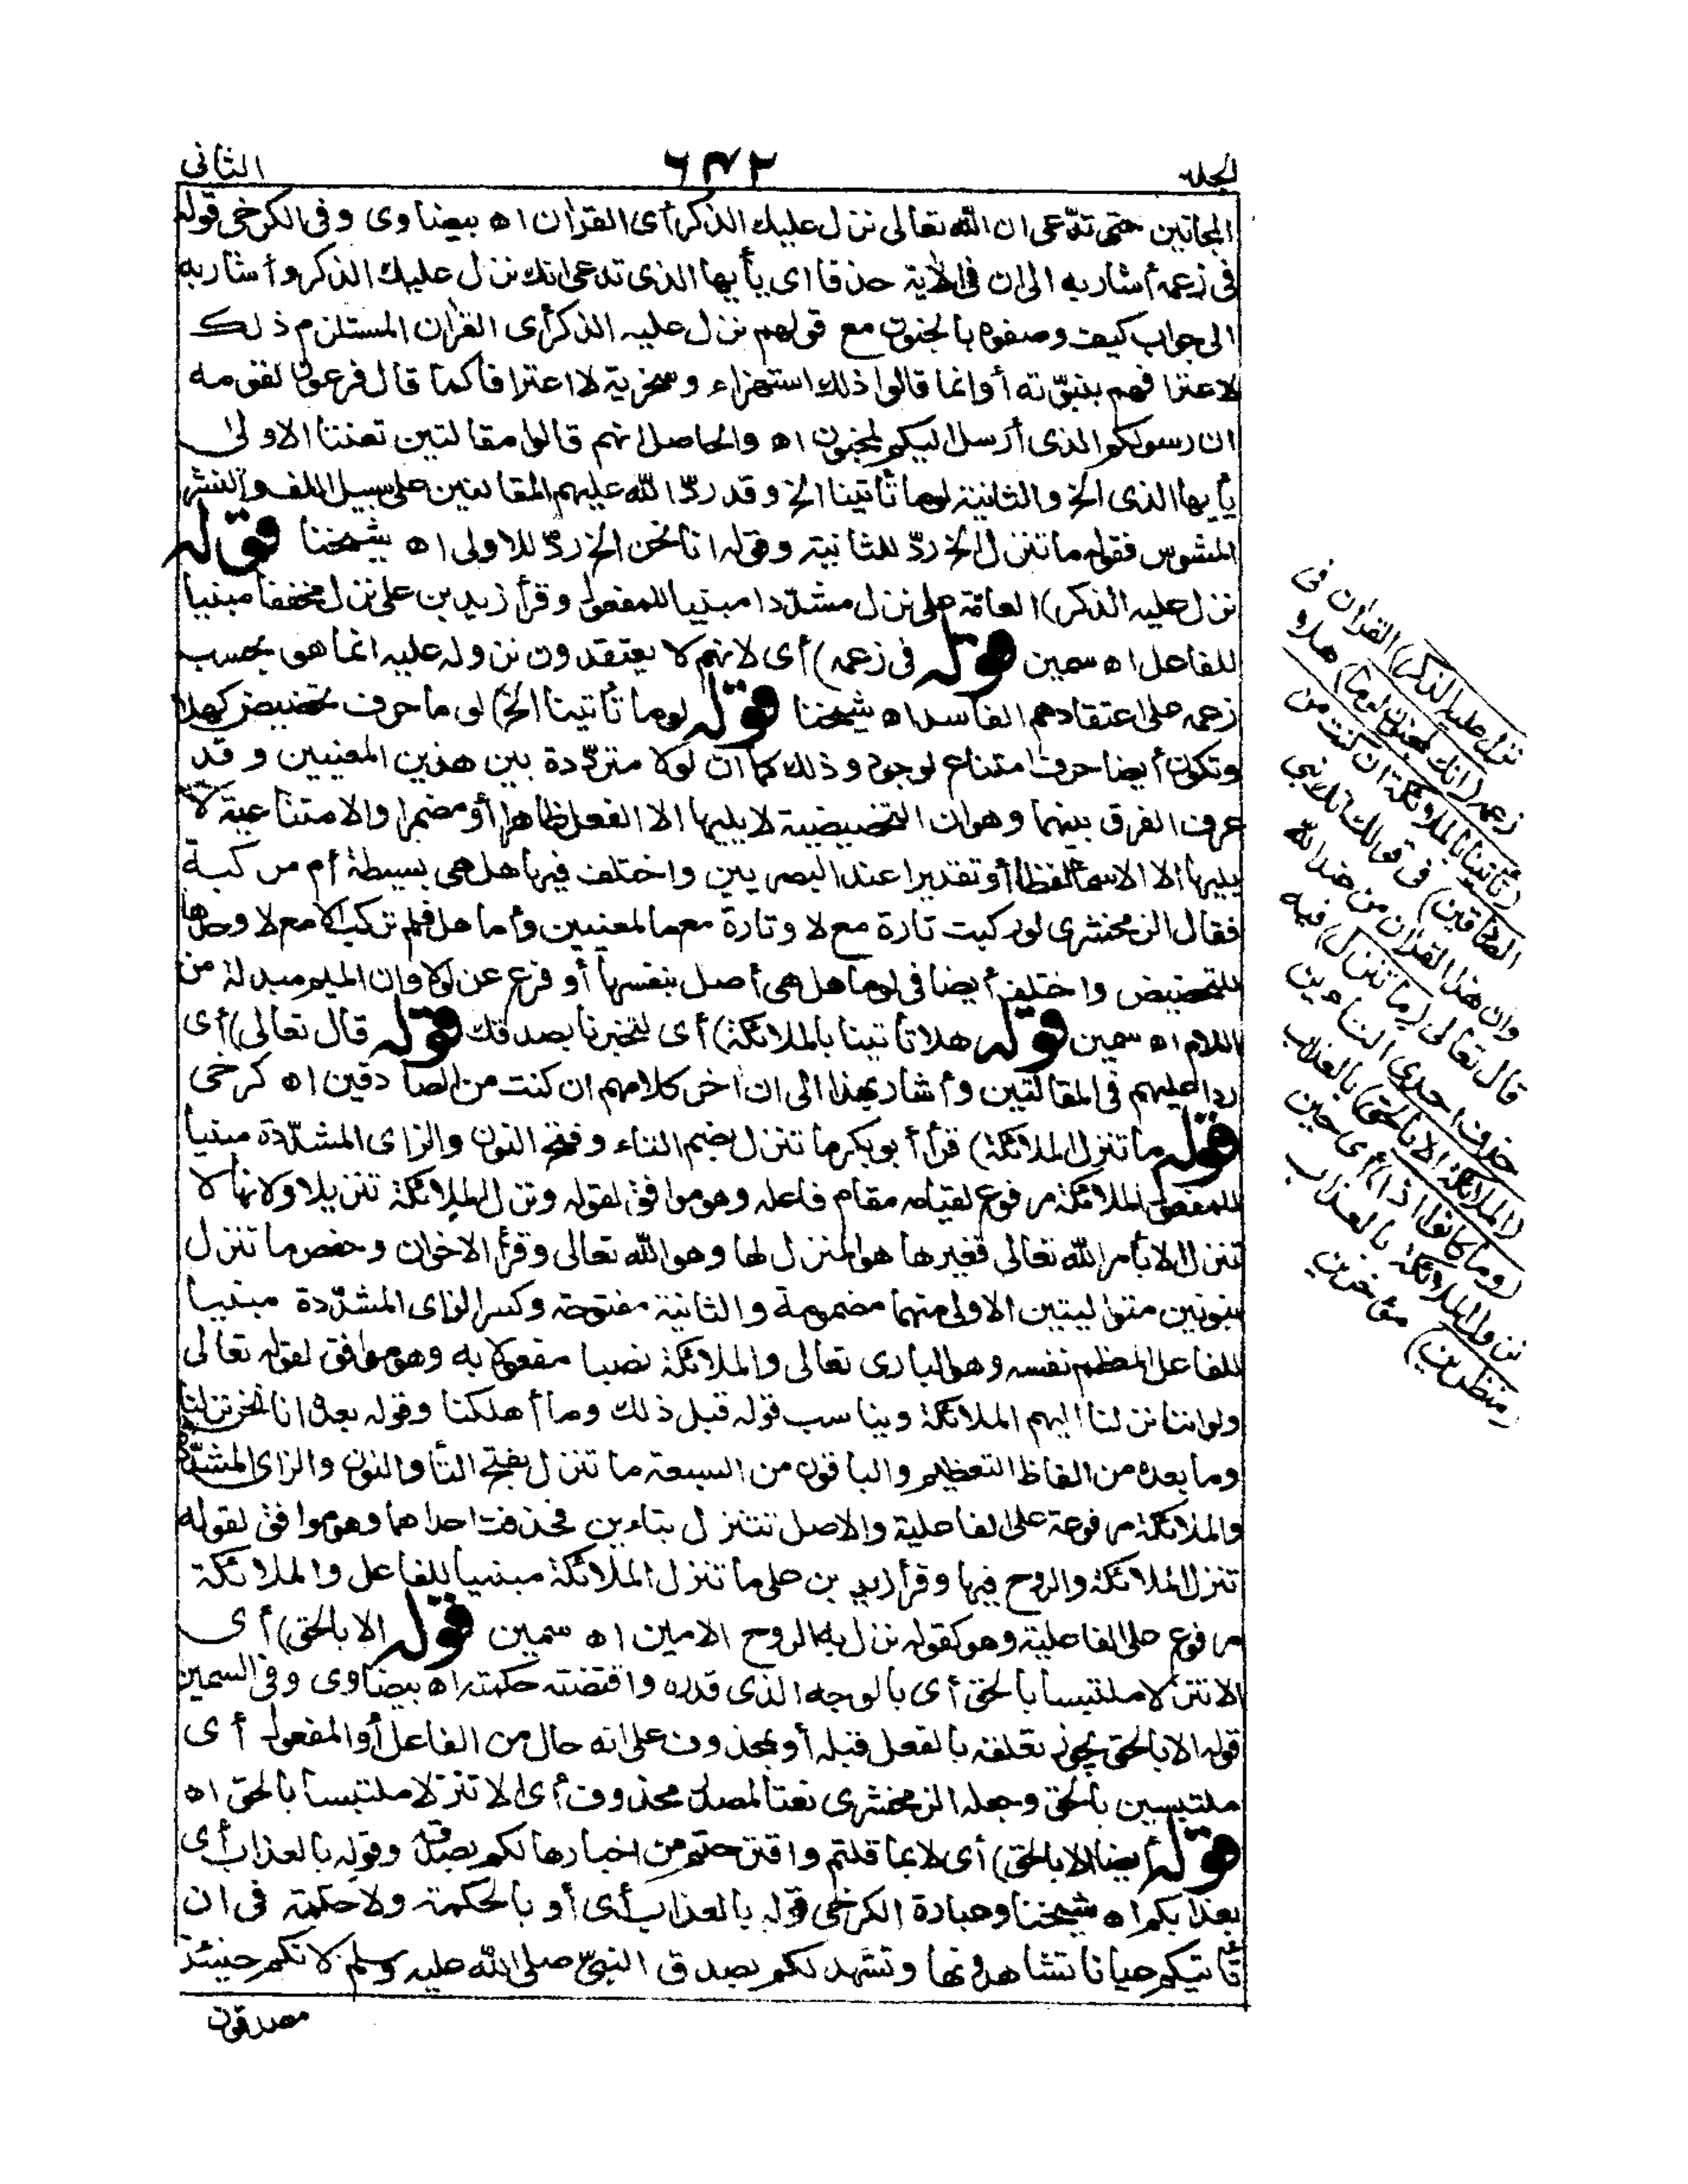 الجلد
٦٤٢
الثانى
المجانين حتى تدّعى ان الله تعالى نزل عليك الذكر أى القرآن اه بيضاوى وفى الكرخى قوله
فى زعمه أشار به الى ان فى الآية حذفا اى يأيها الذى تدعى انك نزل عليك الذكر وأشار به
الى جواب كيف وصفوه بالجنون مع قولهم نزل عليه الذكر أى القرآن المستلزم ذلك
لاعترافهم بنبوّته أو انما قالوا ذلك استهزاء وسخرية لا اعترافا كما قال فرعون لقومه
ان رسولكم الذى أرسل اليكم لمجنون اه والحاصل انهم قالوا مقالتين تعنتا الاولى
يأيها الذى الخ والثانية لوما تأتينا الخ وقد ردّ الله عليهم المقالتين على سبيل اللف والنشر
المشوش فقوله ما تنزل الخ ردّ للثانية وقوله انا نحن الخ ردّ للاولى اه شيخنا قوله
نزل عليه الذكر) العامّة على نزل مشدّدا مبنيا للمفعول وقرأ زيد بن على نزل مخففا مبنيا
للفاعل اه سمين قوله فى زعمه) أى لانهم لا يعتقدون نزوله عليه انما هو بحسب
زعمه على اعتقادهم الفاسد اه شيخنا قوله لوما تأتينا الخ) لوما حرف تحضيض كهلا
وتكون أيضا حرف امتناع لوجود وذلك كما ان لولا متردّدة بين هذين المعنيين وقد
عرف الفرق بينهما وهو ان التحضيضية لا يليها الا الفعل ظاهرا أو مضمرا والامتناعية لا
يليها الا الاسم لفظا أو تقديرا عند البصريين واختلف فيها هل هى بسيطة أم مركبة
فقال الزمخشرى لو ركبت تارة مع لا وتارة مع ما لمعنيين وأما هل فلم تركب الا مع لا وحدها
للتحضيض واختلف أيضا فى لوما هل هى أصل بنفسها أو فرع عن لولا وان الميم مبدلة من
اللام اه سمين قوله هلا تأتينا بالملائكة) أى لتخبرنا بصدقك قوله قال تعالى) أى
ردا عليهم فى المقالتين وأشار بهذا الى ان آخر كلامهم ان كنت من الصادقين اه كرخى
قوله ما تنزل الملائكة) قرأ أبو بكر ما تنزل بضم التاء وفتح النون والزاى المشدّدة مبنيا
للمفعول الملائكة مرفوع لقيامه مقام فاعله وهو موافق لقوله ونزل الملائكة تنزيلا ولانها لا
تنزل الا بأمر الله تعالى فغيرها هو المنزل لها وهو الله تعالى وقرأ الاخوان وحفص ما ننزل
بنونين متواليتين الاولى منهما مضمومة والثانية مفتوحة وكسر الزاى المشدّدة مبنيا
للفاعل المعظم نفسه وهو البارى تعالى والملائكة نصبا مفعولا به وهو موافق لقوله تعالى
ولو اننا نزلنا اليهم الملائكة ويناسب قوله قبل ذلك وما أهلكنا وقوله بعده انا نحن نزلنا
وما بعده من الفاظ التعظيم والباقون من السبعة ما تنزل بفتح التاء والنون والزاى المشدّدة
والملائكة مرفوعة على الفاعلية والاصل تتنزل بتاءين فحذفت احداهما وهو موافق لقوله
تنزل الملائكة والروح فيها وقرأ زيد بن على ما تنزل الملائكة مبنيا للفاعل والملائكة
مرفوع على الفاعلية وهو كقوله نزل به الروح الامين اه سمين قوله الا بالحق) أى
الا تنزلا ملتبسا بالحق أى بالوجه الذى قدره واقتضته حكمته اه بيضاوى وفى السمين
قوله الا بالحق يجوز تعلقه بالفعل قبله أو بمحذوف على انه حال من الفاعل أو المفعول أى
ملتبسين بالحق وجعله الزمخشرى نعتا لمصدر محذوف أى الا تنزلا ملتبسا بالحق اه
قوله أيضا الا بالحق) أى لا بما قلتم واقترحتم من اخبارها لكم بصدقه وقوله بالعذاب أى
بعذابكم اه شيخنا وعبارة الكرخى قوله بالعذاب أى أو بالحكمة ولا حكمة فى ان
تأتيكم عيانا تشاهدونها وتشهد لكم بصدق النبىّ صلى الله عليه وسلم لانكم حينئذ
مصدقون
نزل عليه الذكر) القرآن فى
زعمه (انك لمجنون لوما) هلا
(تأتينا بالملائكة ان كنت من
الصادقين) فى قولك انك نبى
وان هذا القرآن من عند الله
قال تعالى (ما تنزل) فيه
حذف احدى التاءين
(الملائكة الا بالحق) بالعذاب
(وما كانوا اذا) أى حين
نزول الملائكة بالعذاب
(منظرين) مؤخرين